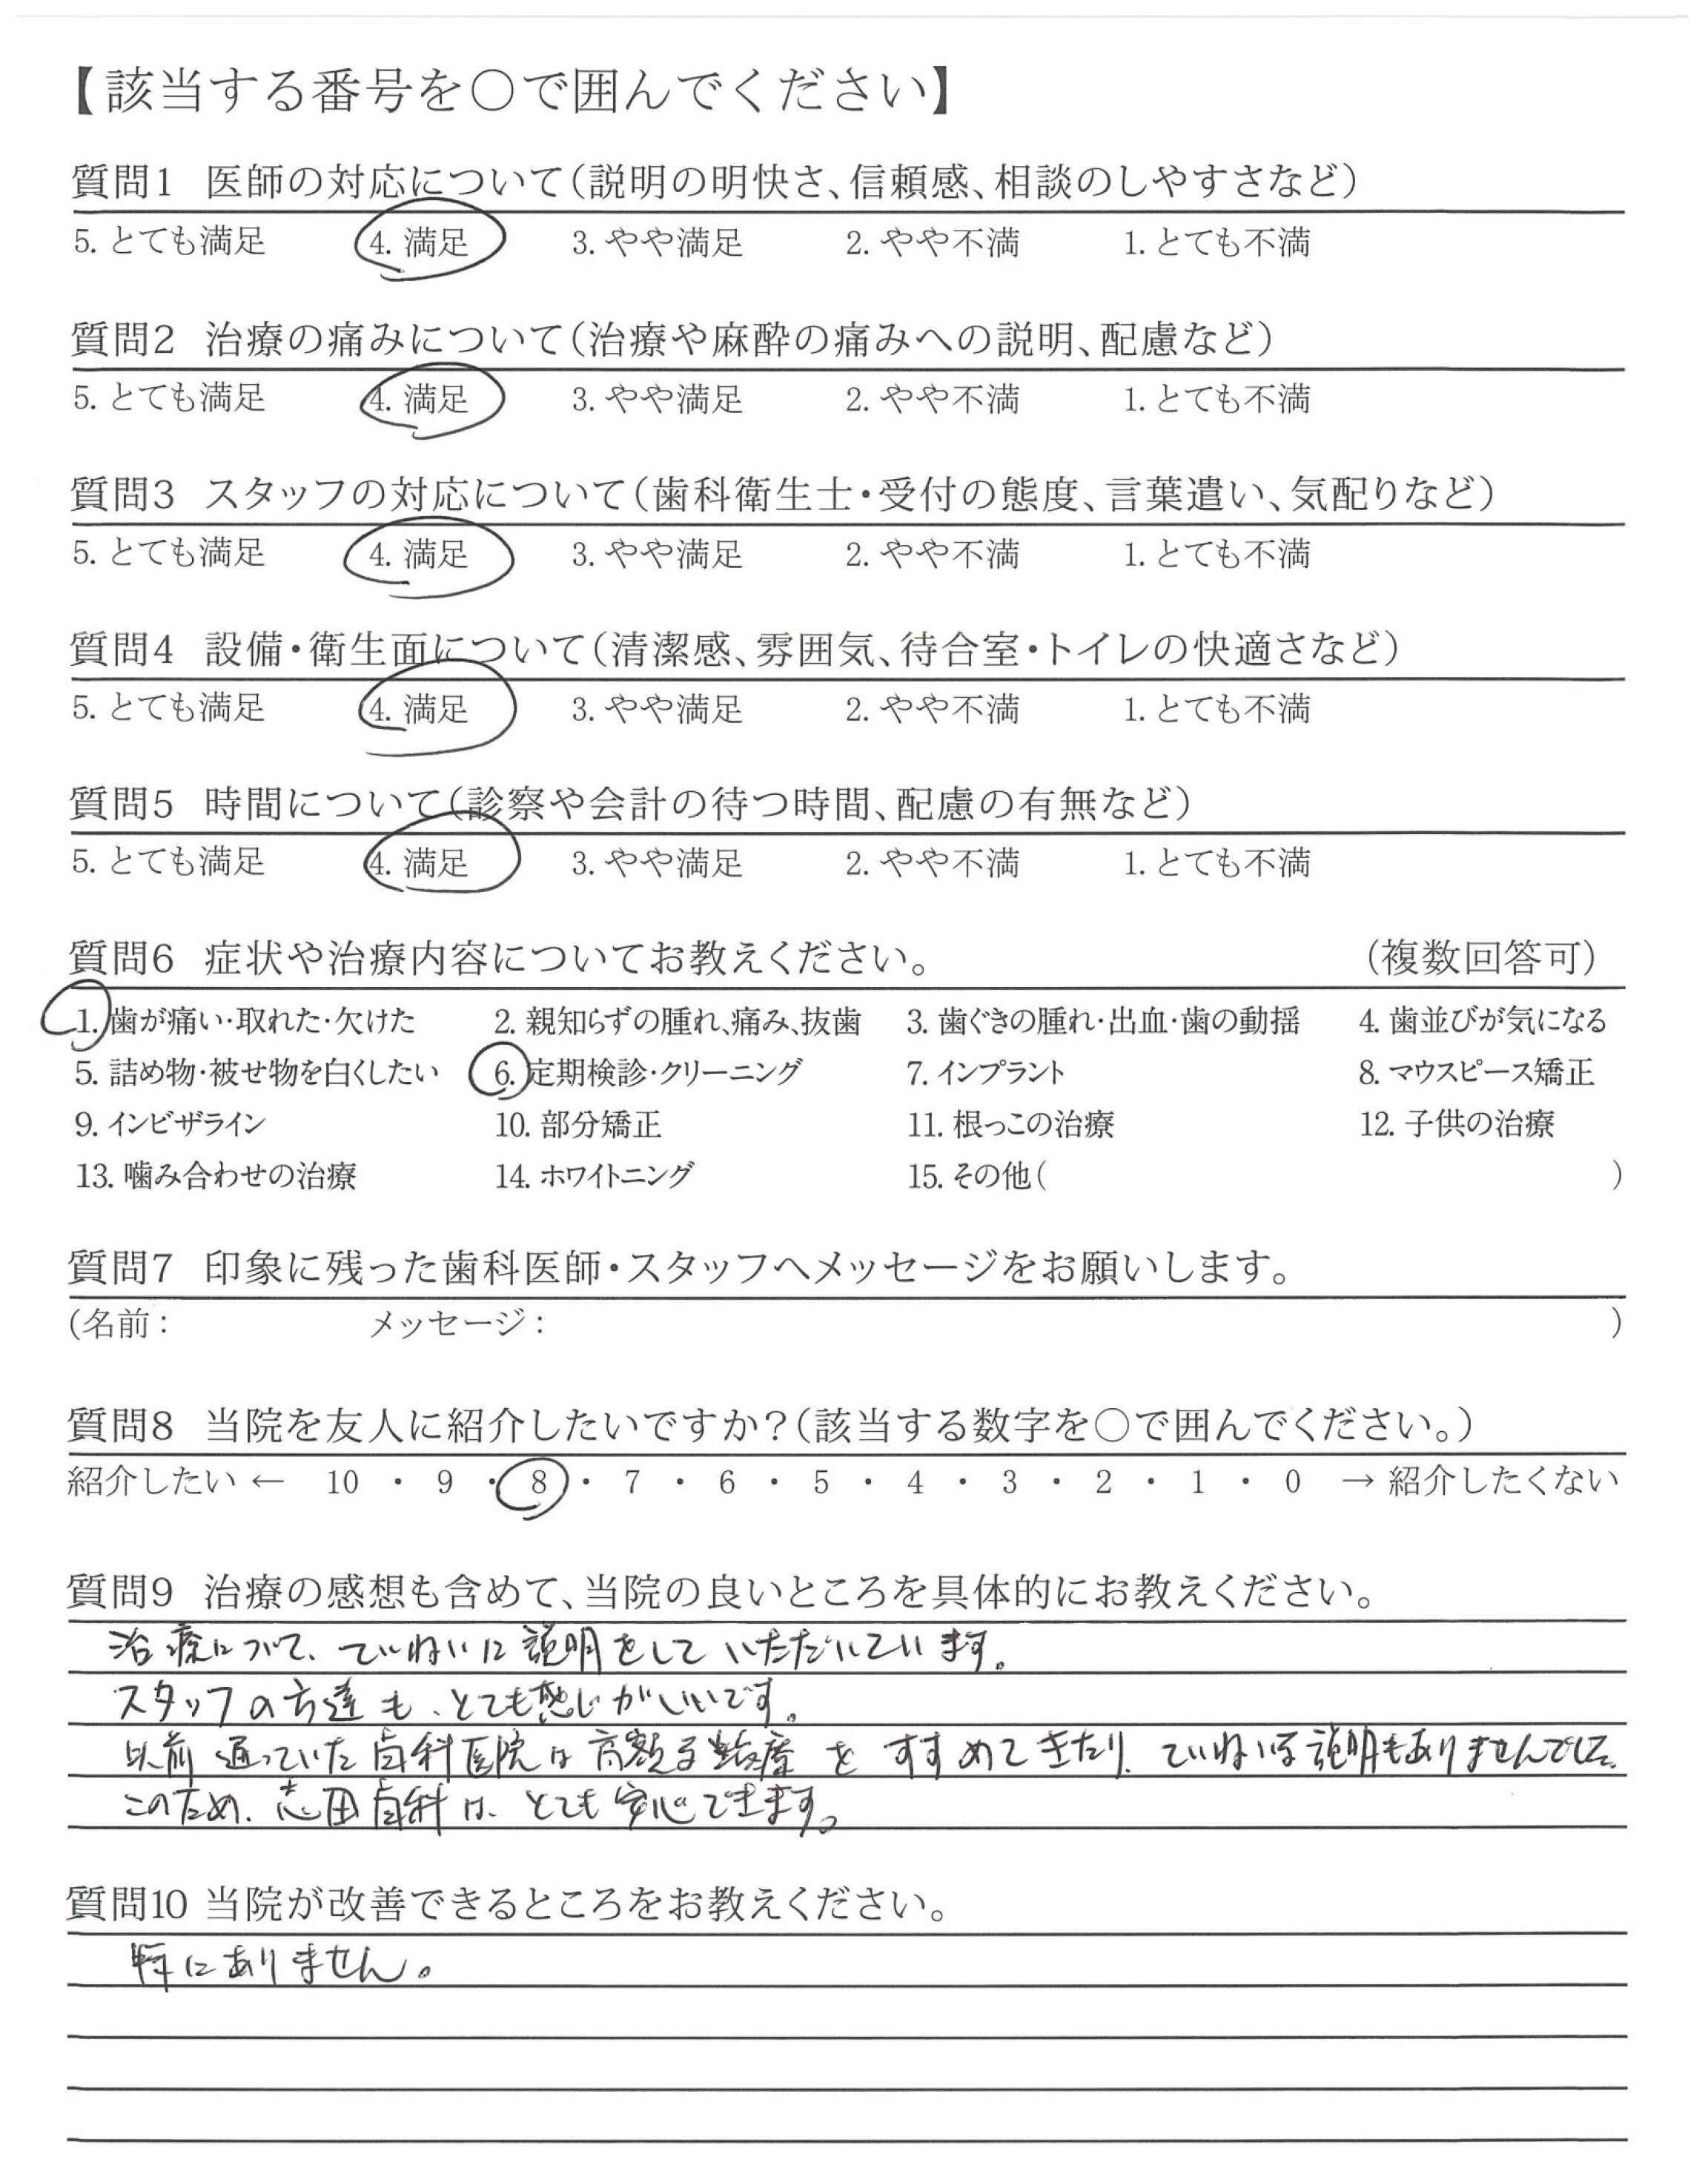 【該当する番号を○で囲んでください】
質問1 医師の対応について(説明の明快さ、信頼感、相談のしやすさなど)
5. とても満足 4. 満足 3. やや満足 2. やや不満 1. とても不満
質問2 治療の痛みについて(治療や麻酔の痛みへの説明、配慮など)
5. とても満足 4. 満足 3. やや満足 2. やや不満 1. とても不満
質問3 スタッフの対応について(歯科衛生士・受付の態度、言葉遣い、気配りなど)
5. とても満足 4. 満足 3. やや満足 2. やや不満 1. とても不満
質問4 設備・衛生面について(清潔感、雰囲気、待合室・トイレの快適さなど)
5. とても満足 4. 満足 3. やや満足 2. やや不満 1. とても不満
質問5 時間について(診察や会計の待つ時間、配慮の有無など)
5. とても満足 4. 満足 3. やや満足 2. やや不満 1. とても不満
質問6 症状や治療内容についてお教えください。 (複数回答可)
1. 歯が痛い・取れた・欠けた 2. 親知らずの腫れ、痛み、抜歯 3. 歯ぐきの腫れ・出血・歯の動揺 4. 歯並びが気になる
5. 詰め物・被せ物を白くしたい 6. 定期検診・クリーニング 7. インプラント 8. マウスピース矯正
9. インビザライン 10. 部分矯正 11. 根っこの治療 12. 子供の治療
13. 噛み合わせの治療 14. ホワイトニング 15. その他( )
質問7 印象に残った歯科医師・スタッフへメッセージをお願いします。
(名前: メッセージ: )
質問8 当院を友人に紹介したいですか?(該当する数字を○で囲んでください。)
紹介したい ← 10 ・ 9 ・ 8 ・ 7 ・ 6 ・ 5 ・ 4 ・ 3 ・ 2 ・ 1 ・ 0 → 紹介したくない
質問9 治療の感想も含めて、当院の良いところを具体的にお教えください。
治療について、ていねいに説明をしていただいています。
スタッフの方達も、とても感じがいいです。
以前通っていた歯科医院は高額な治療をすすめてきたり、ていねいな説明もありませんでした。
このため、志田歯科は、とても安心できます。
質問10 当院が改善できるところをお教えください。
特にありません。